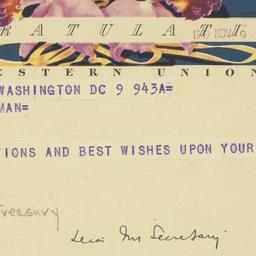 RATULATI
194 NOV 9
ESTERN UNION
WASHINGTON DC 9 943A=
MAN=
TIONS AND BEST WISHES UPON YOUR
Treasury
Dear Mr Secretary